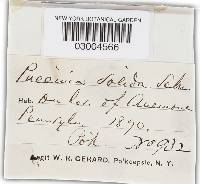 NEW YORK BOTANICAL GARDEN
03004566
Puccinia solida Schw.
Hab. On lvs. of Anemone
Pennsylv. 1890.
No 932
W. R. GERARD, Po'keepsie, N. Y.